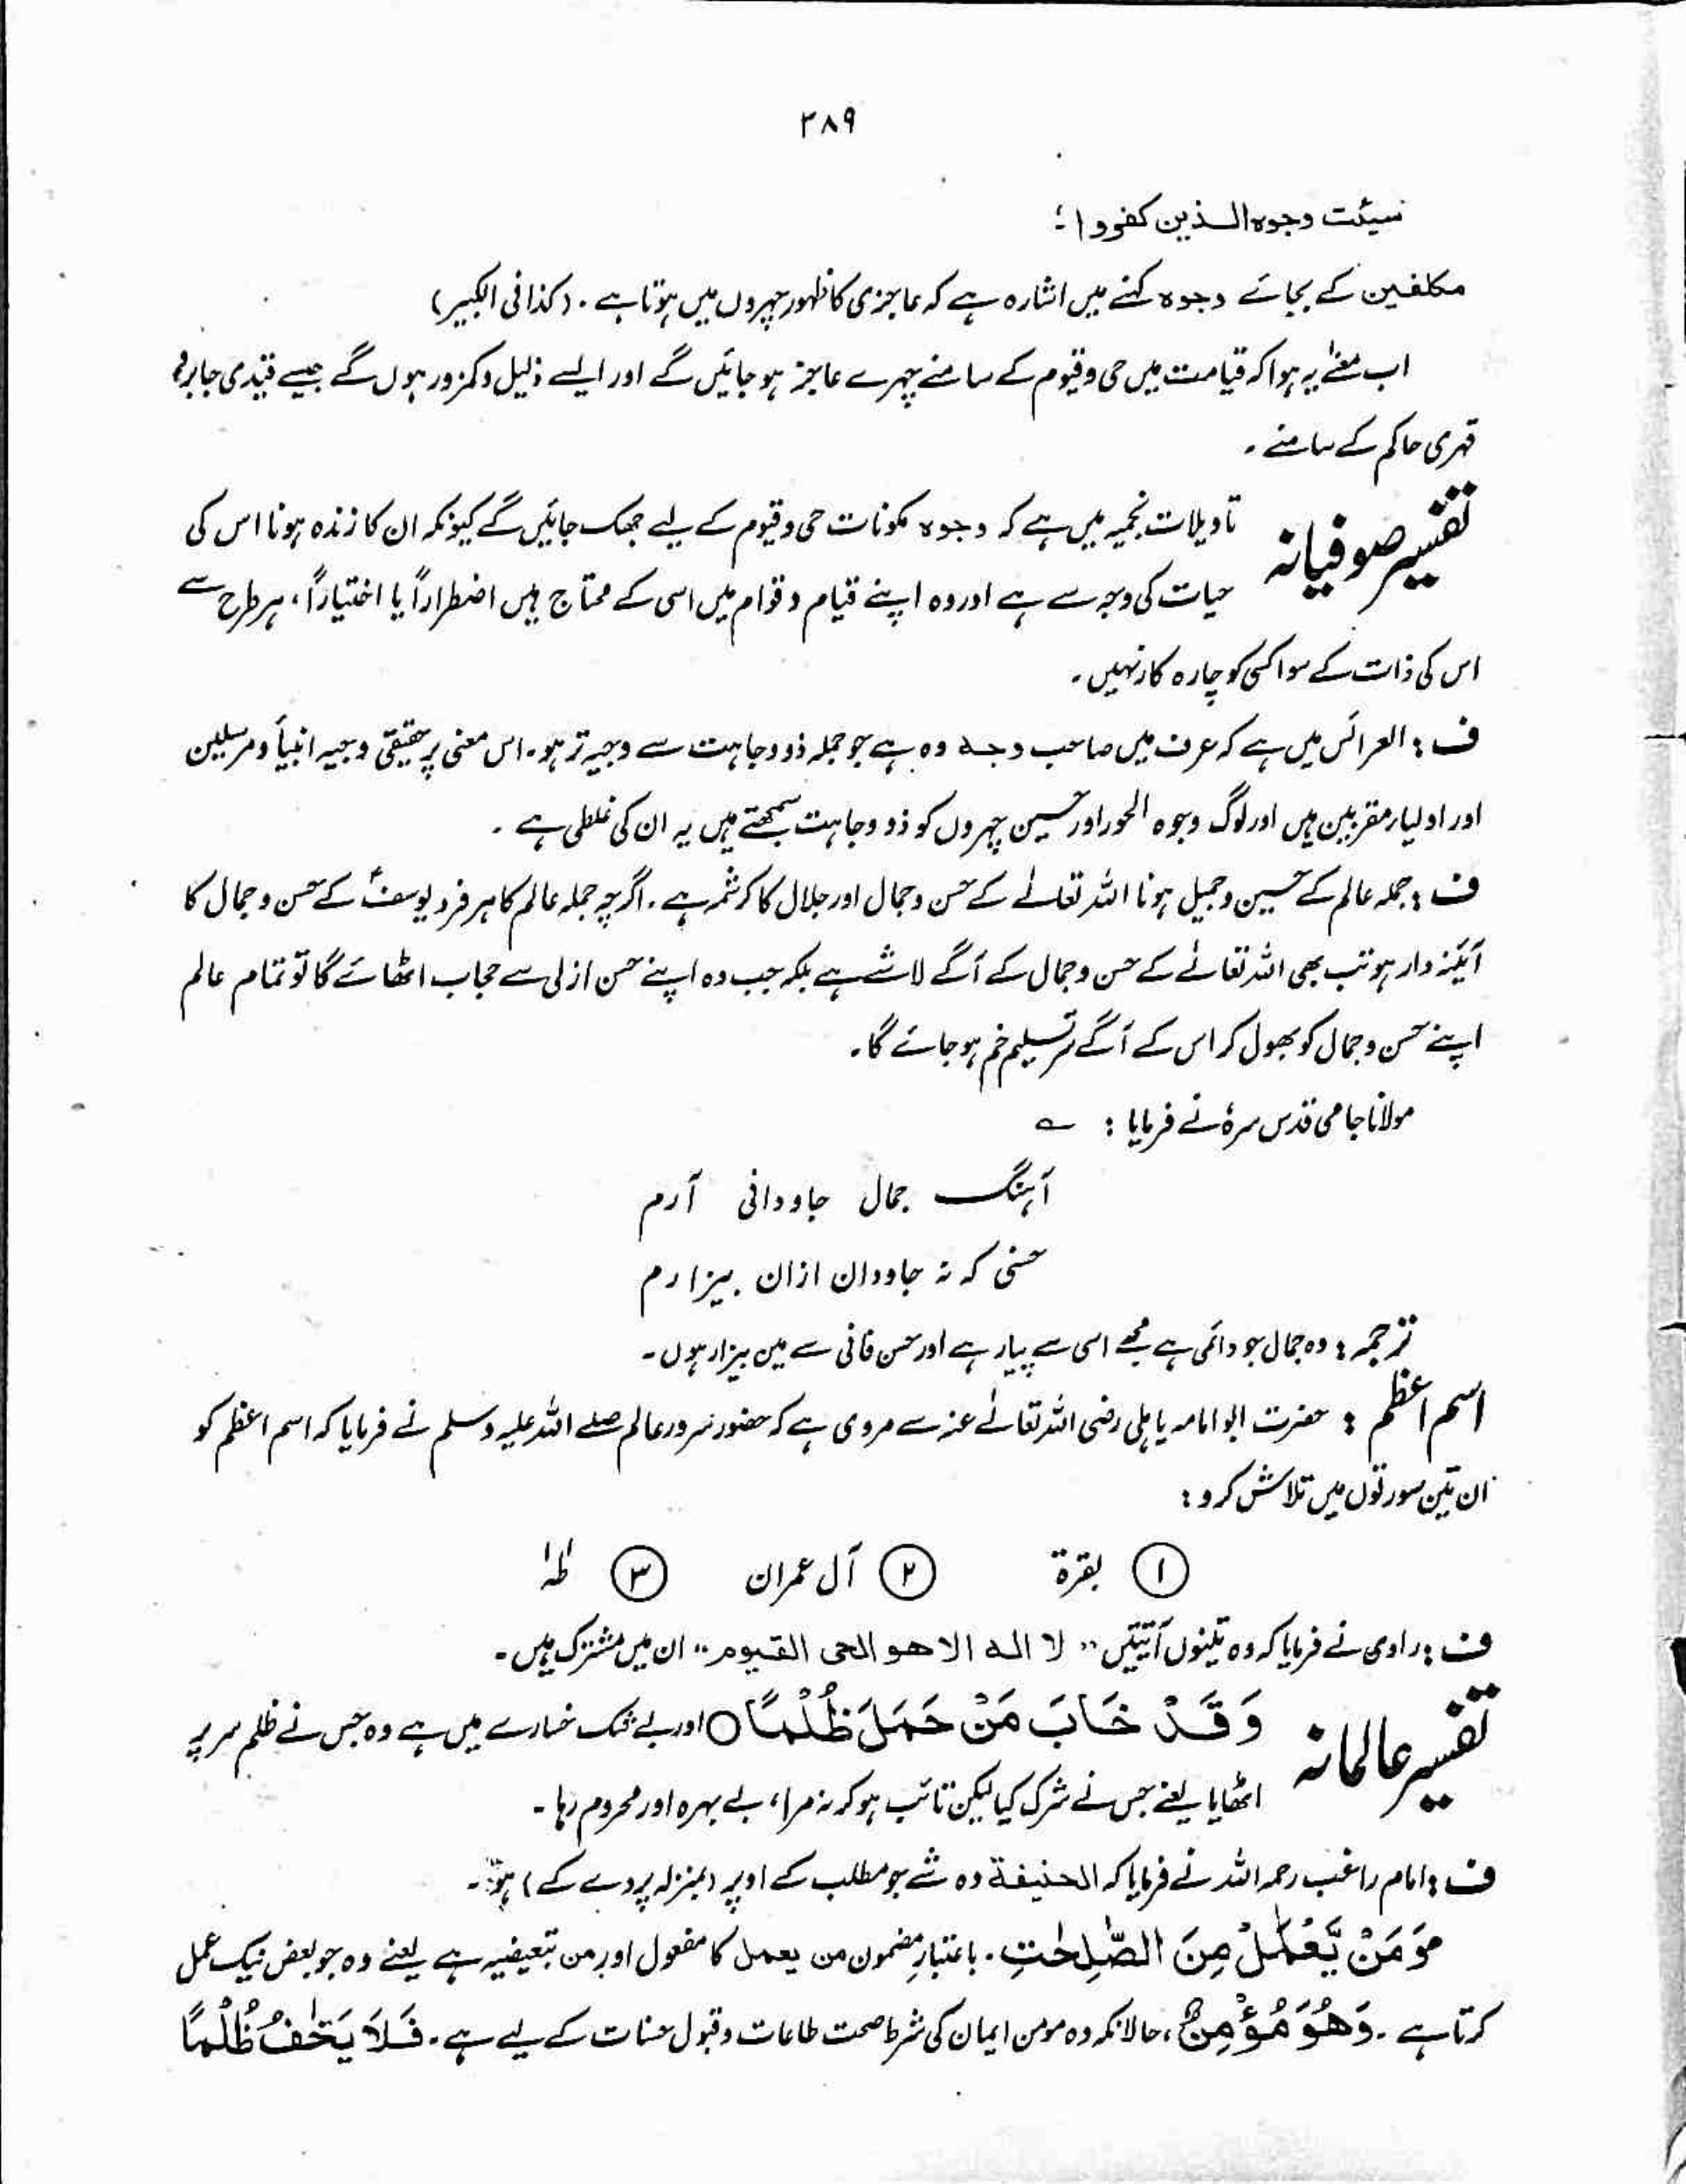 ۳۸۹
نسیئت وجوہ الذین کفروا؛
مکلفین کے بجائے وجوہ کہنے میں اشارہ ہے کہ عاجزی کا ظہور چہروں میں ہوتا ہے۔ (کذا فی الکبیر)
اب معنےٰ یہ ہوا کہ قیامت میں حی و قیوم کے سامنے چہرے عاجز ہو جائیں گے اور ایسے ذلیل و کمزور ہوں گے جیسے قیدی جابر و
قہری حاکم کے سامنے۔
تفسیر صوفیانہ تاویلات نجمیہ میں ہے کہ وجوہ مکونات حی و قیوم کے لیے جھک جائیں گے کیونکہ ان کا زندہ ہونا اس کی
حیات کی وجہ سے ہے اور وہ اپنے قیام و قوام میں اسی کے محتاج ہیں اضطراراً یا اختیاراً، ہر طرح سے
اس کی ذات کے سوا کسی کو چارہ کار نہیں۔
ف: العرائس میں ہے کہ عرف میں صاحب وجہ وہ ہے جو جملہ ذو وجاہت سے وجیہ تر ہو۔ اس معنی پر حقیقی وجیہ انبیأ و مرسلین
اور اولیاء مقربین ہیں اور لوگ وجوہ الحور اور حسین چہروں کو ذو وجاہت سمجھتے ہیں یہ ان کی غلطی ہے۔
ف: جملہ عالم کے حسین و جمیل ہونا اللہ تعالےٰ کے حسن و جمال اور جلال کا کرشمہ ہے۔ اگرچہ جملہ عالم کا ہر فرد یوسفؑ کے حسن و جمال کا
آئینہ دار ہو تب بھی اللہ تعالےٰ کے حسن و جمال کے آگے لاشے ہے بلکہ جب وہ اپنے حسن ازلی سے حجاب اٹھائے گا تو تمام عالم
اپنے حسن و جمال کو بھول کر اس کے آگے سرِ تسلیم خم ہو جائے گا۔
مولانا جامی قدس سرہٗ نے فرمایا: ؎
آہنگ جمال جاودانی آرم
حسنی کہ نہ جاودان ازان بیزارم
ترجمہ: وہ جمال جو دائمی ہے مجھے اسی سے پیار ہے اور حسن فانی سے میں بیزار ہوں۔
اسم اعظم: حضرت ابو امامہ یاہلی رضی اللہ تعالےٰ عنہ سے مروی ہے کہ حضور سرور عالم صلے اللہ علیہ وسلم نے فرمایا کہ اسم اعظم کو
ان تین سورتوں میں تلاش کرو:
① بقرۃ ② آل عمران ③ طٰہٰ
ف: راوی نے فرمایا کہ وہ تینوں آیتیں "لا الہ الا ھو الحی القیوم" ان میں مشترک ہیں۔
تفسیر عالمانہ وَقَدْ خَابَ مَنْ حَمَلَ ظُلْمًا ○ اور بے شک خسارے میں ہے وہ جس نے ظلم سر پر
اٹھایا یعنے جس نے شرک کیا لیکن تائب ہو کر نہ مرا، بے بہرہ اور محروم رہا۔
ف: امام راغب رحمہ اللہ نے فرمایا کہ الحنیفة وہ شے جو مطلب کے اوپر (بمنزلہ پردے کے) ہو۔
وَمَنْ يَّعْمَلْ مِنَ الصّٰلِحٰتِ۔ باعتبارِ مضمون من یعمل کا مفعول اور من تبعیضیہ ہے یعنے وہ جو بعض نیک عمل
کرتا ہے۔ وَهُوَ مُؤْمِنٌ، حالانکہ وہ مومن ایمان کی شرط صحت طاعات و قبول حسنات کے لیے ہے۔ فَلَا يَخٰفُ ظُلْمًا